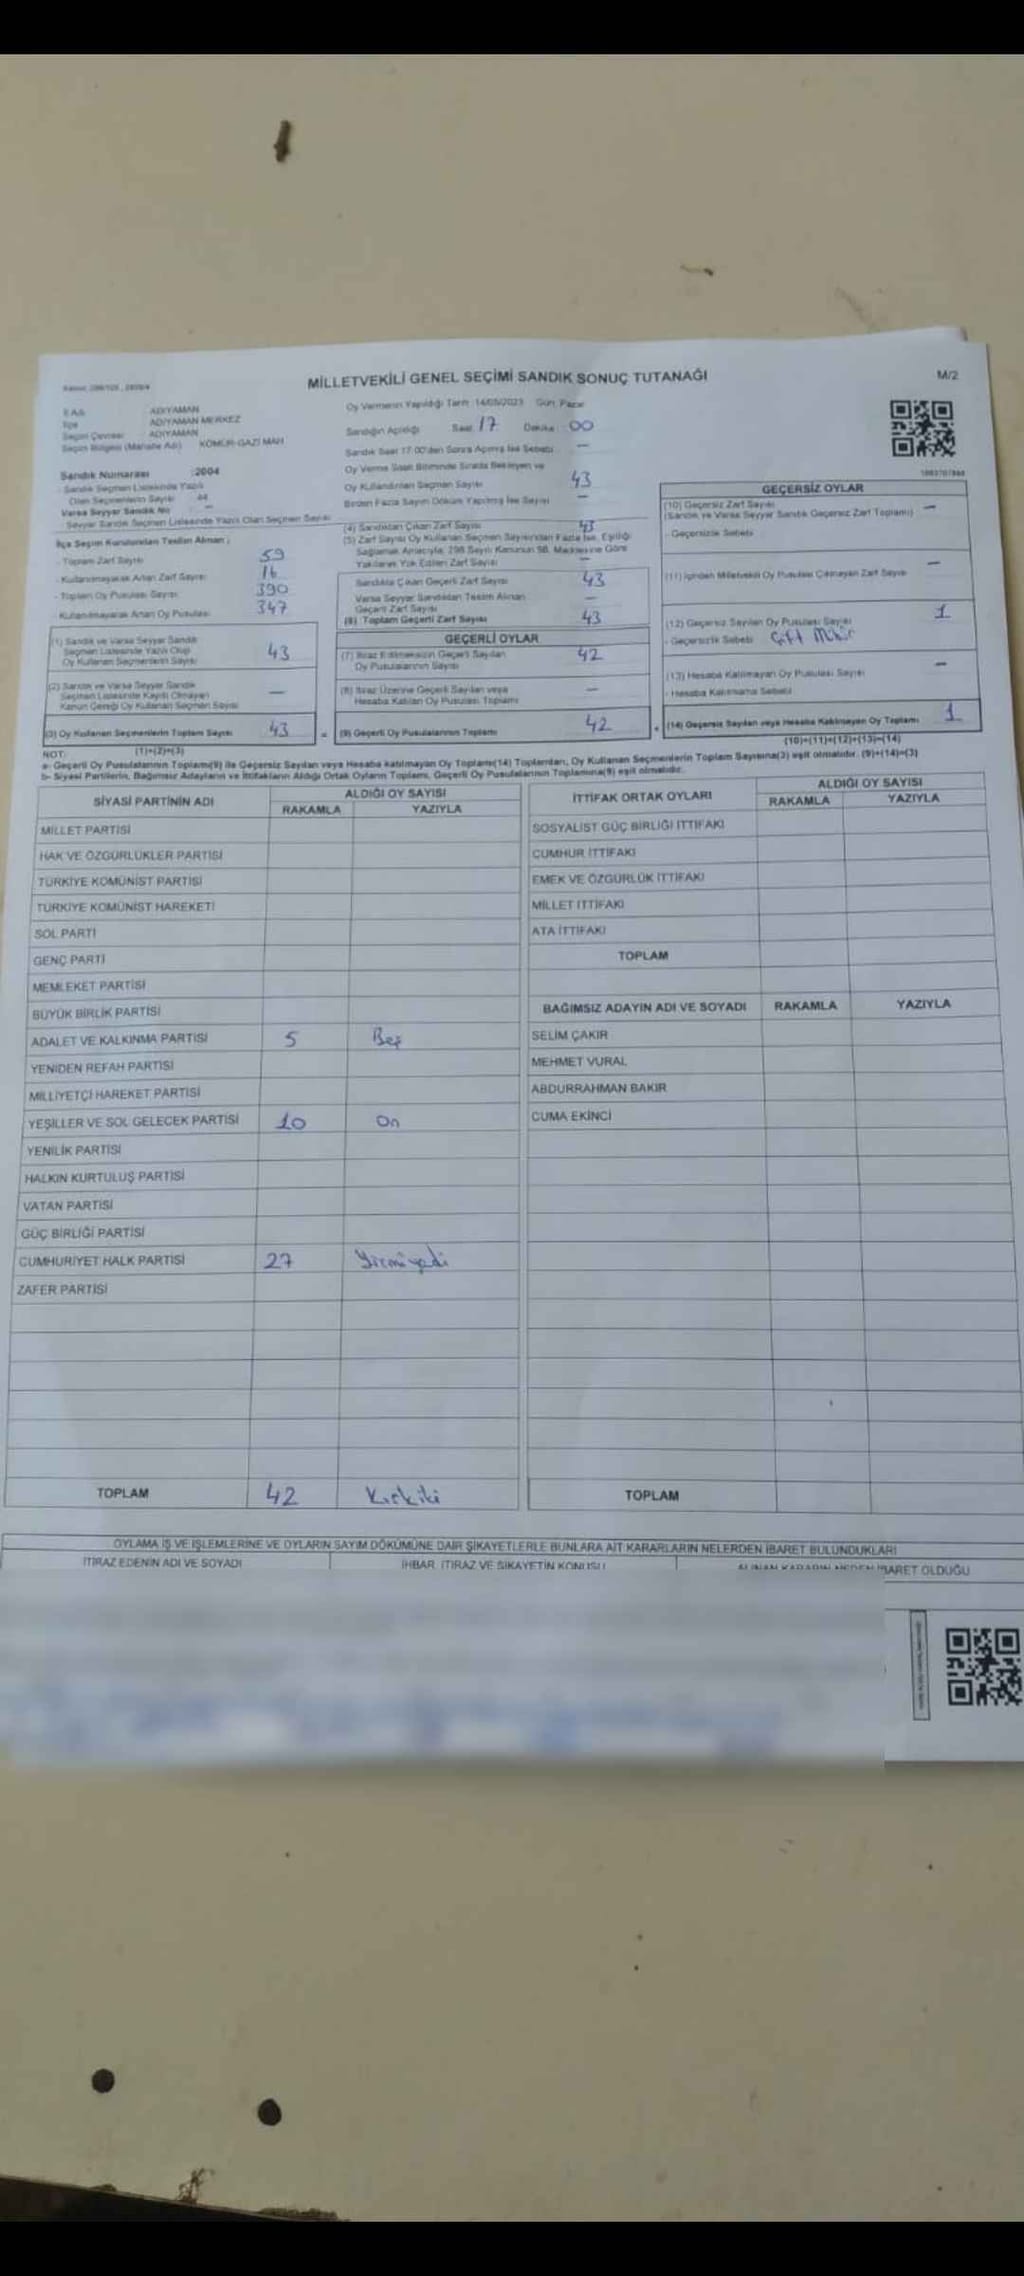 MİLLETVEKİLİ GENEL SEÇİMİ SANDIK SONUÇ TUTANAĞI
M/2
İl Adı ADIYAMAN
İlçe ADIYAMAN MERKEZ
Seçim Çevresi ADIYAMAN
Seçim Bölgesi (Mahalle Adı) KÖMÜR-GAZİ MAH
Sandık Numarası :2004
Sandık Seçmen Listesinde Yazılı
Olan Seçmenlerin Sayısı 44
Varsa Seyyar Sandık No -
Seyyar Sandık Seçmen Listesinde Yazılı Olan Seçmen Sayısı
İlçe Seçim Kurulundan Teslim Alınan ;
- Toplam Zarf Sayısı 59
- Kullanılmayarak Artan Zarf Sayısı 16
- Toplam Oy Pusulası Sayısı 390
- Kullanılmayarak Artan Oy Pusulası 347
(1) Sandık ve Varsa Seyyar Sandık
Seçmen Listesinde Yazılı Olup
Oy Kullanan Seçmenlerin Sayısı 43
(2) Sandık ve Varsa Seyyar Sandık
Seçmen Listesinde Kayıtlı Olmayan
Kanun Gereği Oy Kullanan Seçmen Sayısı —
(3) Oy Kullanan Seçmenlerin Toplam Sayısı 43
(1)+(2)=(3)
Oy Vermenin Yapıldığı Tarih :14/05/2023 Gün: Pazar
Sandığın Açıldığı Saat: 17 Dakika: 00
Sandık Saat 17.00'den Sonra Açılmış İse Sebebi —
Oy Verme Saati Bitiminde Sırada Bekleyen ve
Oy Kullandırılan Seçmen Sayısı 43
Birden Fazla Sayım Döküm Yapılmış İse Sayısı —
(4) Sandıktan Çıkan Zarf Sayısı 43
(5) Zarf Sayısı Oy Kullanan Seçmen Sayısından Fazla İse, Eşitliği
Sağlamak Amacıyla, 298 Sayılı Kanunun 98. Maddesine Göre
Yakılarak Yok Edilen Zarf Sayısı —
Sandıkta Çıkan Geçerli Zarf Sayısı 43
Varsa Seyyar Sandıktan Teslim Alınan
Geçerli Zarf Sayısı —
(6) Toplam Geçerli Zarf Sayısı 43
GEÇERLİ OYLAR
(7) İtiraz Edilmeksizin Geçerli Sayılan
Oy Pusulalarının Sayısı 42
(8) İtiraz Üzerine Geçerli Sayılan veya
Hesaba Katılan Oy Pusulası Toplamı —
= (9) Geçerli Oy Pusulalarının Toplamı 42
GEÇERSİZ OYLAR
(10) Geçersiz Zarf Sayısı
(Sandık ve Varsa Seyyar Sandık Geçersiz Zarf Toplamı) —
- Geçersizlik Sebebi
(11) İçinden Milletvekili Oy Pusulası Çıkmayan Zarf Sayısı —
(12) Geçersiz Sayılan Oy Pusulası Sayısı 1
- Geçersizlik Sebebi Çift Mühür
(13) Hesaba Katılmayan Oy Pusulası Sayısı —
- Hesaba Katılmama Sebebi
+ (14) Geçersiz Sayılan veya Hesaba Katılmayan Oy Toplamı 1
(10)+(11)+(12)+(13)=(14)
NOT:
a- Geçerli Oy Pusulalarının Toplamı(9) ile Geçersiz Sayılan veya Hesaba katılmayan Oy Toplamı(14) Toplamları, Oy Kullanan Seçmenlerin Toplam Sayısına(3) eşit olmalıdır. (9)+(14)=(3)
b- Siyasi Partilerin, Bağımsız Adayların ve İttifakların Aldığı Ortak Oyların Toplamı, Geçerli Oy Pusulalarının Toplamına(9) eşit olmalıdır.
SİYASİ PARTİNİN ADI ALDIĞI OY SAYISI
RAKAMLA YAZIYLA
MİLLET PARTİSİ
HAK VE ÖZGÜRLÜKLER PARTİSİ
TÜRKİYE KOMÜNİST PARTİSİ
TÜRKİYE KOMÜNİST HAREKETİ
SOL PARTİ
GENÇ PARTİ
MEMLEKET PARTİSİ
BÜYÜK BİRLİK PARTİSİ
ADALET VE KALKINMA PARTİSİ 5 Beş
YENİDEN REFAH PARTİSİ
MİLLİYETÇİ HAREKET PARTİSİ
YEŞİLLER VE SOL GELECEK PARTİSİ 10 On
YENİLİK PARTİSİ
HALKIN KURTULUŞ PARTİSİ
VATAN PARTİSİ
GÜÇ BİRLİĞİ PARTİSİ
CUMHURİYET HALK PARTİSİ 27 Yirmiyedi
ZAFER PARTİSİ
TOPLAM 42 Kırkiki
İTTİFAK ORTAK OYLARI ALDIĞI OY SAYISI
RAKAMLA YAZIYLA
SOSYALİST GÜÇ BİRLİĞİ İTTİFAKI
CUMHUR İTTİFAKI
EMEK VE ÖZGÜRLÜK İTTİFAKI
MİLLET İTTİFAKI
ATA İTTİFAKI
TOPLAM
BAĞIMSIZ ADAYIN ADI VE SOYADI RAKAMLA YAZIYLA
SELİM ÇAKIR
MEHMET VURAL
ABDURRAHMAN BAKIR
CUMA EKİNCİ
TOPLAM
OYLAMA İŞ VE İŞLEMLERİNE VE OYLARIN SAYIM DÖKÜMÜNE DAİR ŞİKAYETLERLE BUNLARA AİT KARARLARIN NELERDEN İBARET BULUNDUKLARI
İTİRAZ EDENİN ADI VE SOYADI İHBAR, İTİRAZ VE ŞİKAYETİN KONUSU ALINAN KARARIN NEDEN İBARET OLDUĞU